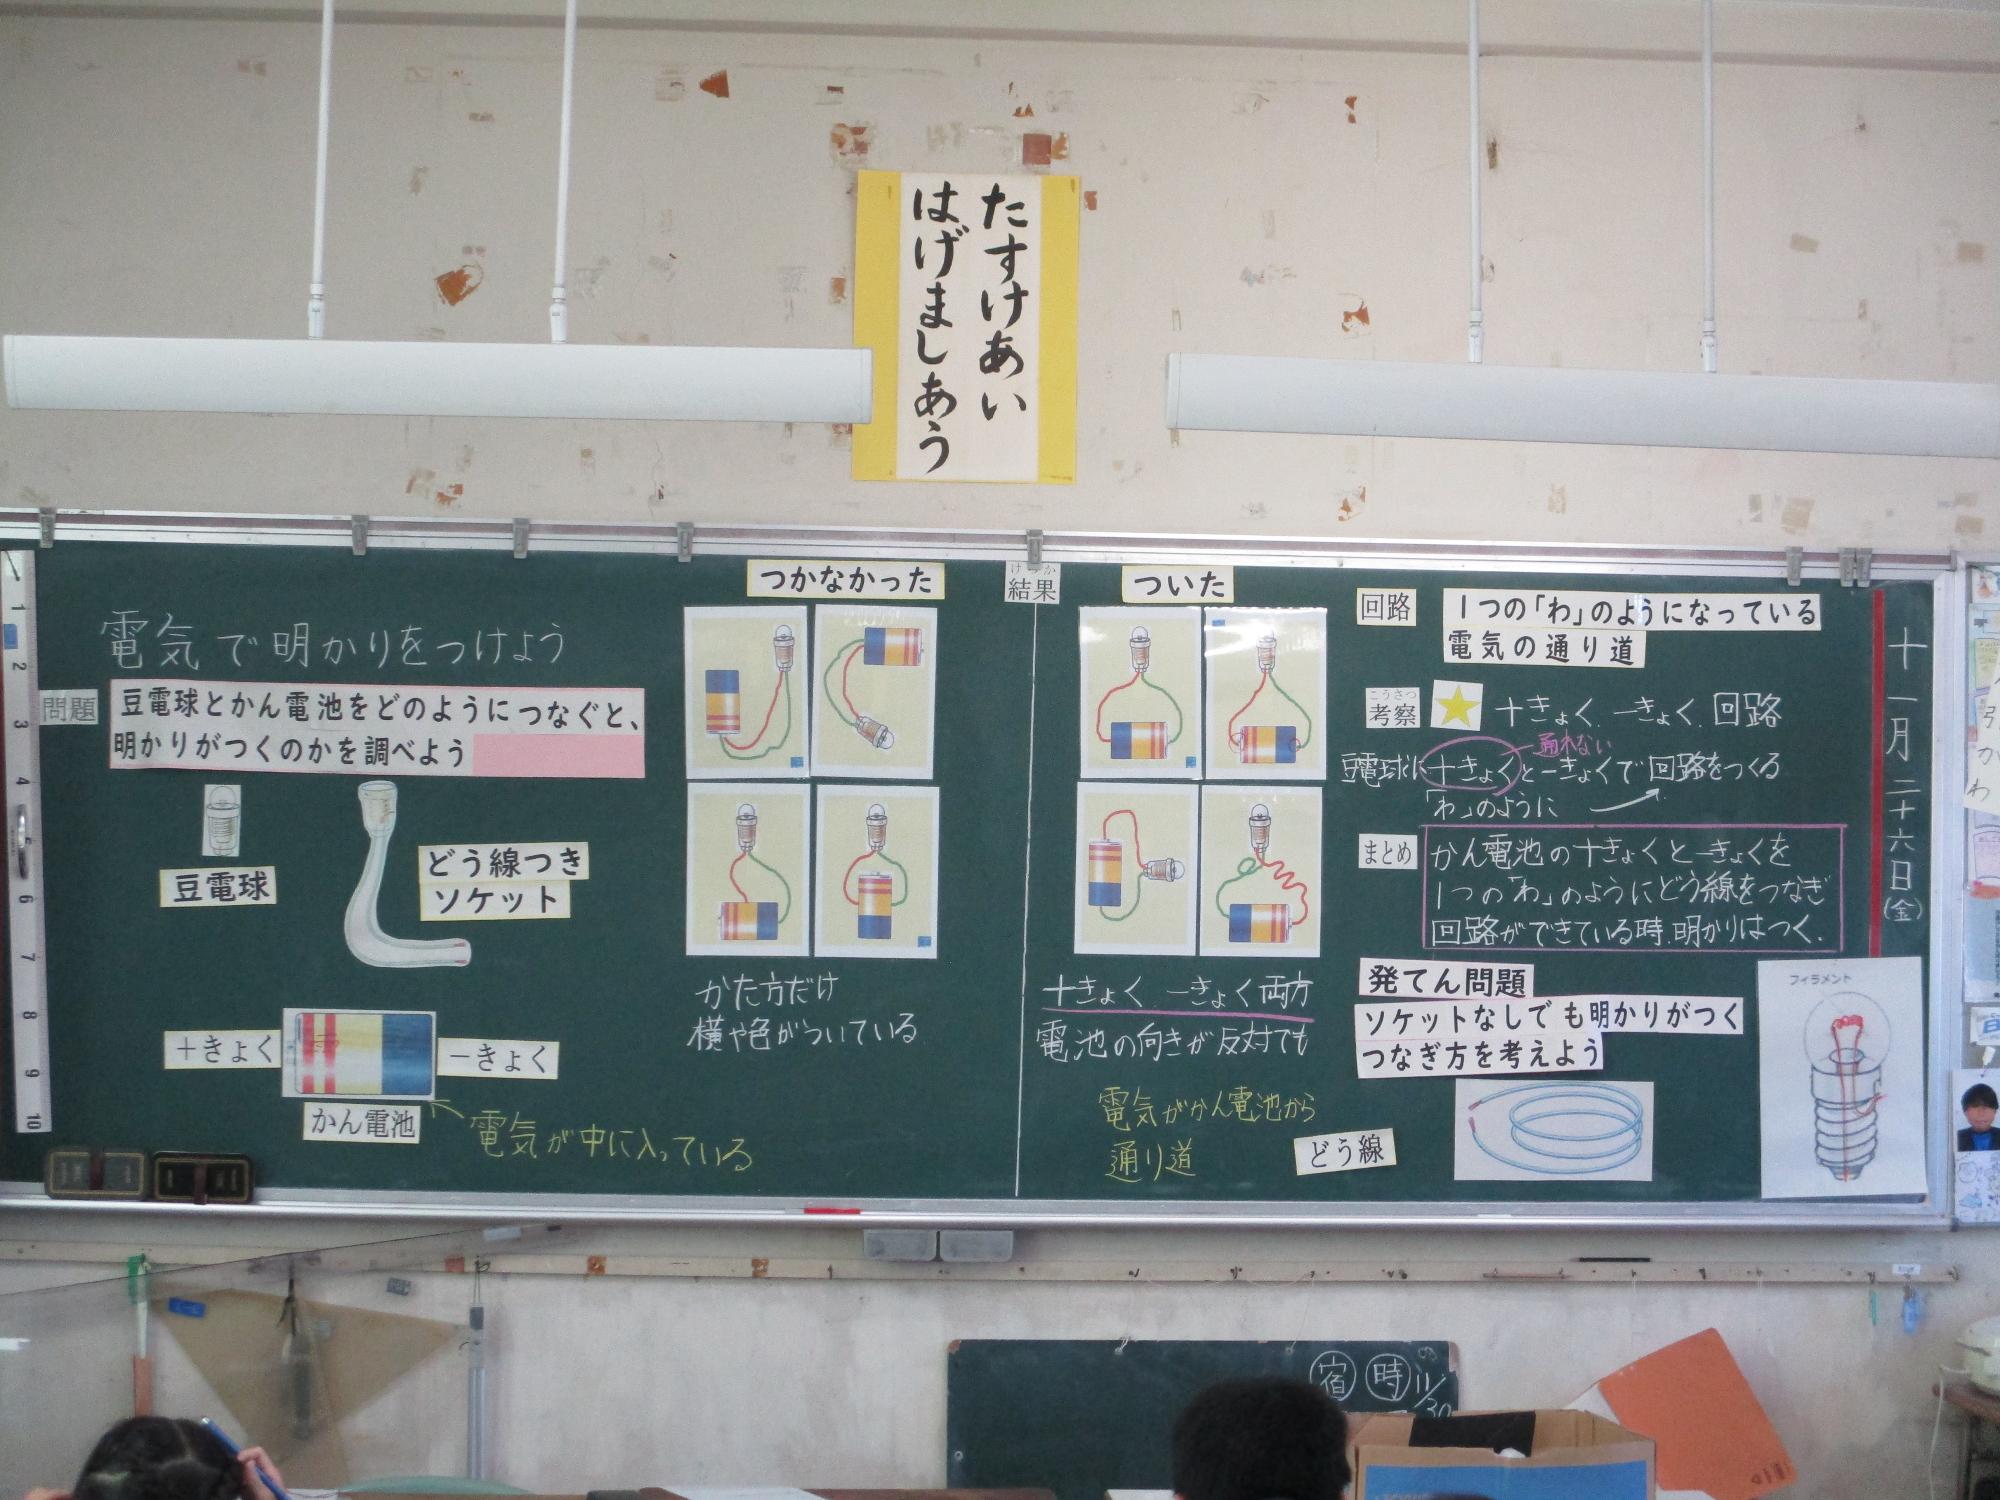 たすけあい
はげましあう
電気で明かりをつけよう
問題
豆電球とかん電池をどのようにつなぐと、
明かりがつくのかを調べよう
豆電球
どう線つき
ソケット
+きょく
-きょく
かん電池
電気が中に入っている
つかなかった
かた方だけ
横や色がついている
けっか
結果
ついた
+きょく -きょく両方
電池の向きが反対でも
電気がかん電池から
通り道
どう線
回路
1つの「わ」のようになっている
電気の通り道
こうさつ
考察
+きょく、-きょく、回路
通れない
豆電球に+きょくと-きょくで回路をつくる
「わ」のように
まとめ
かん電池の+きょくと-きょくを
1つの「わ」のようにどう線をつなぎ
回路ができている時、明かりはつく。
発てん問題
ソケットなしでも明かりがつく
つなぎ方を考えよう
フィラメント
十一月二十六日(金)
1
2
3
4
5
6
7
8
9
10
宿 時 11/30